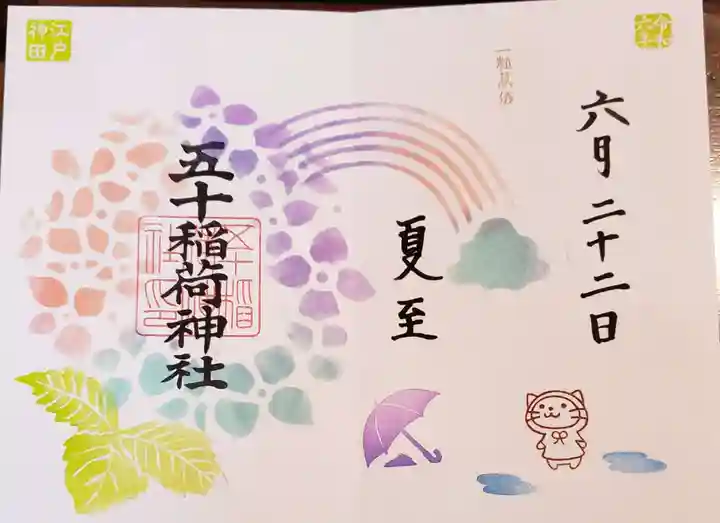 令和
六年
一粒萬倍
六月二十二日
夏至
江戸
神田
五十稲荷神社